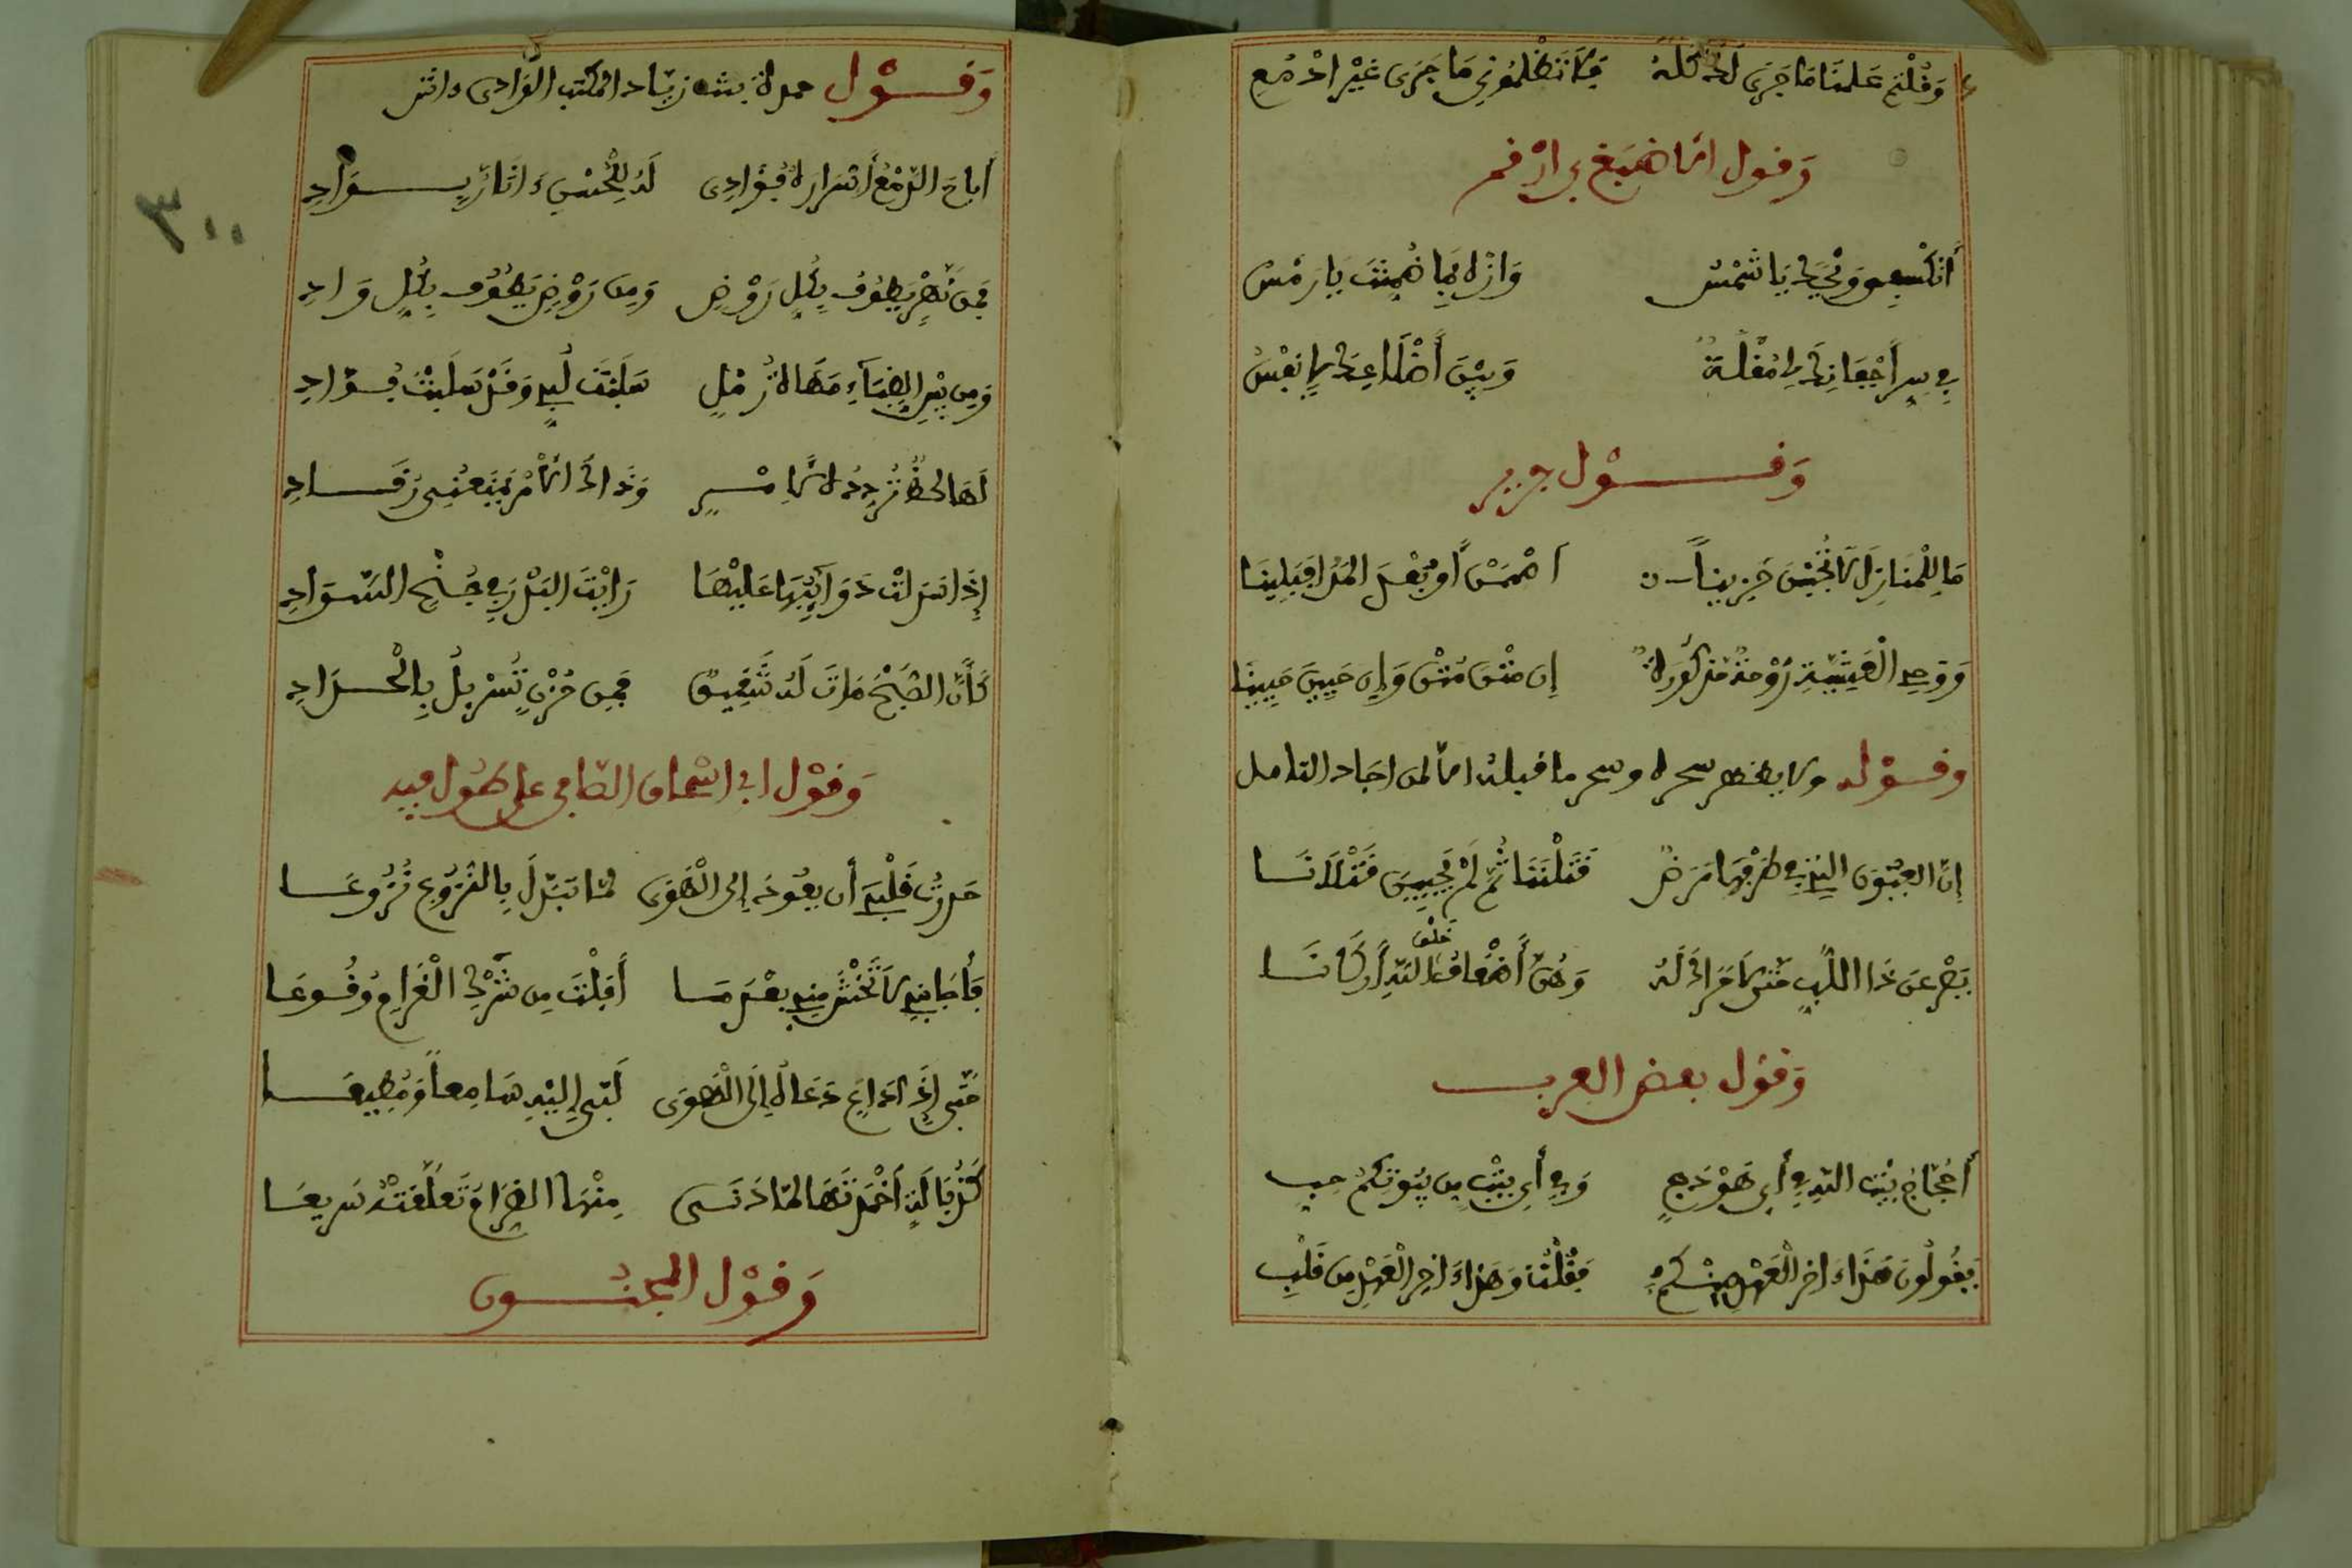 وَقُلْتُمْ عَلِمْنَا مَا جَرَى لَكَ كُلَّهُ فَلَا تَظْلِمُونِي مَا جَرَى غَيْرُ أَدْمُعِ
وَقول
وَيْحَكَ يَا شَمْسُ يَا رَمْسُ
بِي مُقْلَةٌ وَبَيْنَ يَا نَفْسُ
وَقَوْل جرير
مَا لِلْمَنَازِلِ لَا تُجِيْبُ حَزِينَاً أَصَمَمْنَ أَوْ بَعُدَ المَدَا فَبَلِينَا
الْعَشِيَّةِ رَوْحَةٌ مَذْكُورَةٌ إِن مِتْنَ مُتْنَ وَإِن حَيِينَ حَيِينَا
وقوله ولا يظهر سحره وسحر ما قبله الا لمن اجاد التامل
إِنَّ العُيُونَ الَّتِي فِي طَرْفِهَا مَرَضٌ قَتَلْنَنَا ثُمَّ لَمْ يُحْيِينَ قَتْلَانَا
يَصْرَعْنَ ذَا اللُّبِّ حَتَّى لَا حَرَاكَ لَهُ وَهُنَّ أَضْعَفُ خَلْقِ اللَّهِ أَرْكَانَا
وَقول بعض العرب
أَحُجَّاجَ بَيْتِ اللَّهِ فِي أَيِّ هَوْدَجٍ وَفِي أَيِّ بَيْتٍ مِن بُيُوتِكُمُ حِبِ
يَقُولُونَ هَذَا ءَاخِرُ الْعَهْدِ مِنْكُمُ فَقُلْتُ وَهَذَا ءَاخِرُ الْعَهْدِ مِن قَلْبِ
وَقَوْل حمدة بنت زياد المكتب الوَّادى واتش
أَبَاحَ الدَّمْعُ أَسْرَارِهِ بُوَادِى لَهُ لِلْحُسْنِ ءَاثَارٌ بَوَادِ
فَمِن نَهْرٍ يَطُوفُ بِكُلِّ رَوْضٍ وَمِن رَوْضٍ يَطُوفُ بِكُلِّ وَادِ
وَمِن بَيْنِ الظِّبَاءِ مَهَاةُ رَمْلٍ سَلَبَتْ لُبِّي وَقَدْ سَلَبَتْ فُؤَادِ
لَهَا لَحْظٌ تُرَدِّدُهُ لِأَمْرٍ وَذَاكَ الأَمْرُ يَمْنَعُنِي رُقَادِ
إِذَا سَدَلَتْ ذَوَائِبَهَا عَلَيْهَا رَأيْتَ البَدْرَ فِي جُنْحِ السَّوَادِ
كَأَنَّ الصُّبْحَ مَاتَ لَهُ شَقِيقٌ فَمِن حُزْنٍ تَسَرْبَلَ بِالْحِدَادِ
وَقَوْل ابى اسْحاق على طول فيه
قَلْبِي أَن يَعُودَ إِلَى الْهَوَى لَمَّا تَبَدَّلَ بِالنُّزُوعِ نُزُوعَا
فَأَجَابَنِي لَا تَخْشَ مِنِّي بَعْدَ مَا أَفْلَتُّ مِن شَرَكِ الْغَرَامِ وُقُوعَا
حَتَّى إِذَا دَاعٍ دَعَاهُ إِلَى الْهَوَى لَبَّى إِلَيْهِ سَامِعاً وَمُطِيعَا
كَذُبَالَةٍ أَخْمَدْتَهَا لَمَّا دَنَى مِنْهَا الضِّرَامُ تَعَلَّقَتْهُ سَرِيعَا
وَقَوْل المجنون
٣٠٠